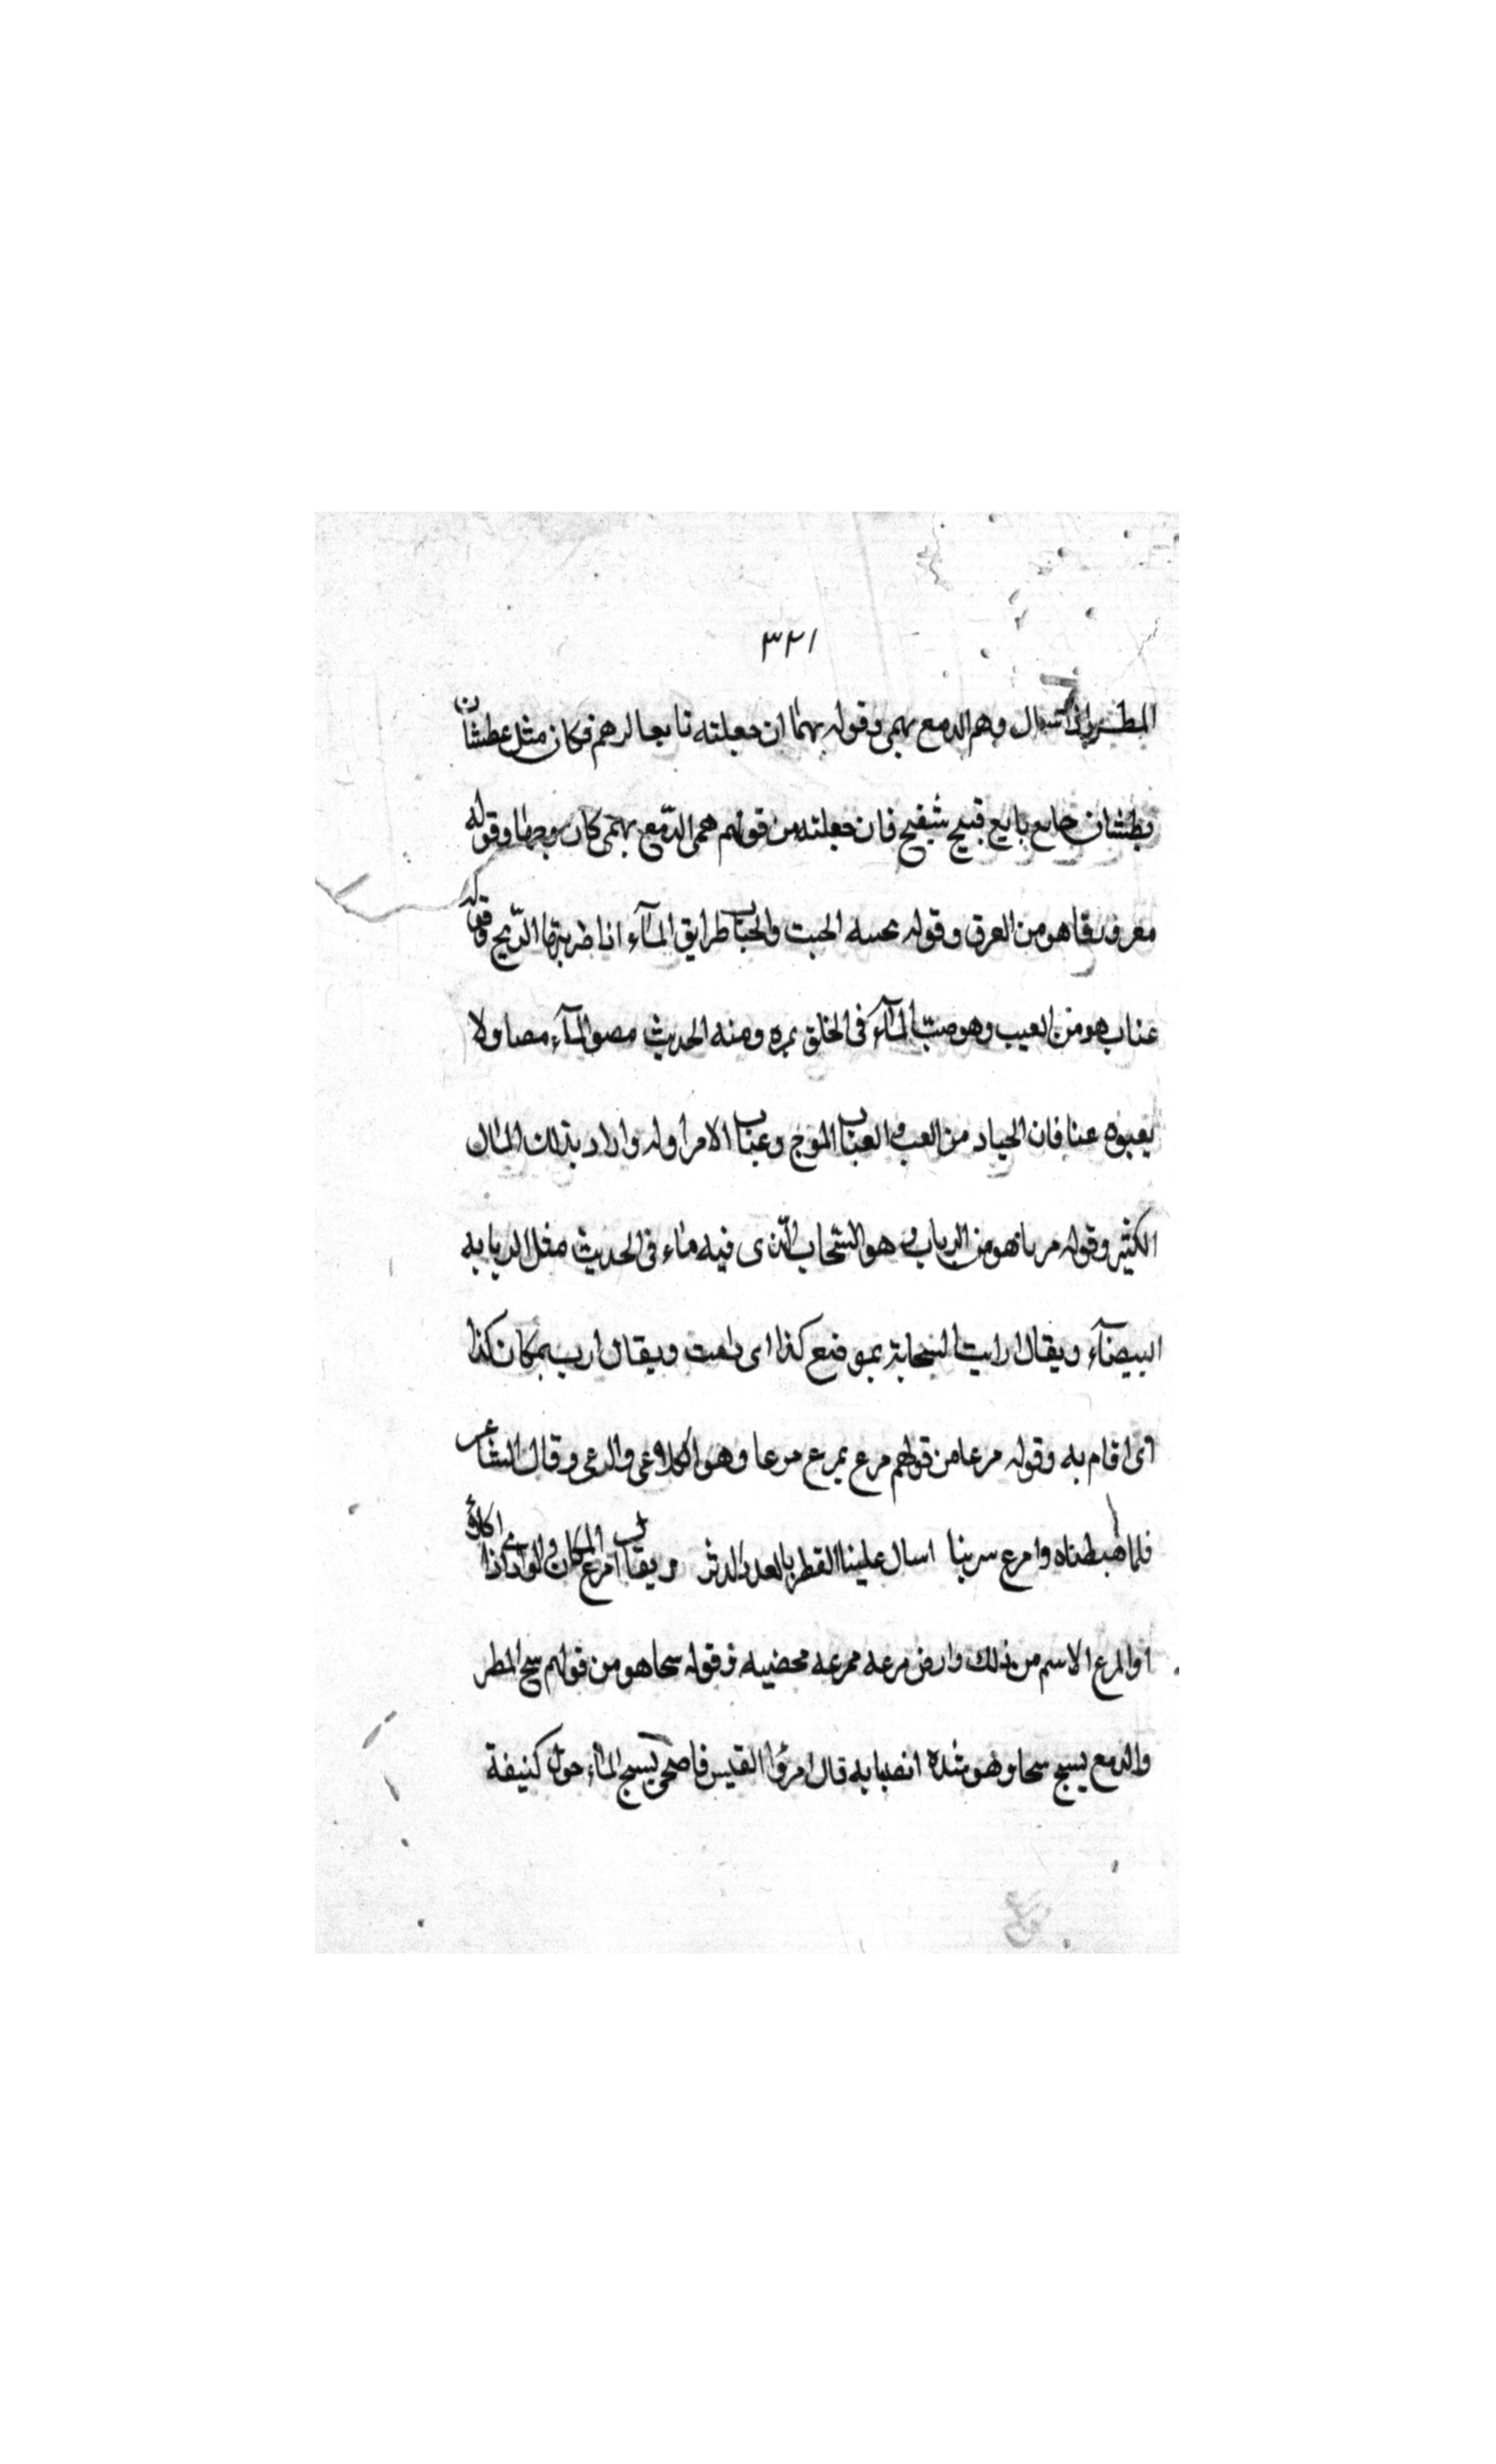 ٣٢١
المطر اذا سال وهم الدمع يهمى وقوله يهما ان جعلته تابعا لرهم فكان مثل عطشان
بطشان جايع بايع قبيح شقيح فان جعلته من قولهم همى الدّمع يهمى كان وقوله
هو من العرق وقوله الحبب والحباب طرايق المآء اذا ضربتها الرّيح وقوله
عناب هو من العبب وهو صبّ المآء فى الحلق ومنه الحديث مصو المآء مصا ولا
يعبوه عبا فان من العب و العباب الموج وعباب الامر اوله واراد بذلك المال
الكثير وقوله هو من الرباب و هو السّحاب الّذى فيه ماء فى الحديث الربابه
البيضآء ويقال ارابت السحابة بموضع كذا اى دامت ويقال ارب بمكان كذا
اى اقام به وقوله مرعا من قولهم مرع يمرع مرعا وهو الكلاء والرعى وقال الشاعر
فلما هبطناه وامرع سربنا اسال علينا القطر بالعدد الدثر ويقال امرع المكان والوادى اذا اكلاء
او المرع الاسم من ذلك وارض مرعه ممرعه وقوله سحا هو من قولهم سح المطر
والدمع يسح سحا وهو شدة انصبابه قال امرؤا القيس فاضحى يسح الماء حول كتيفة